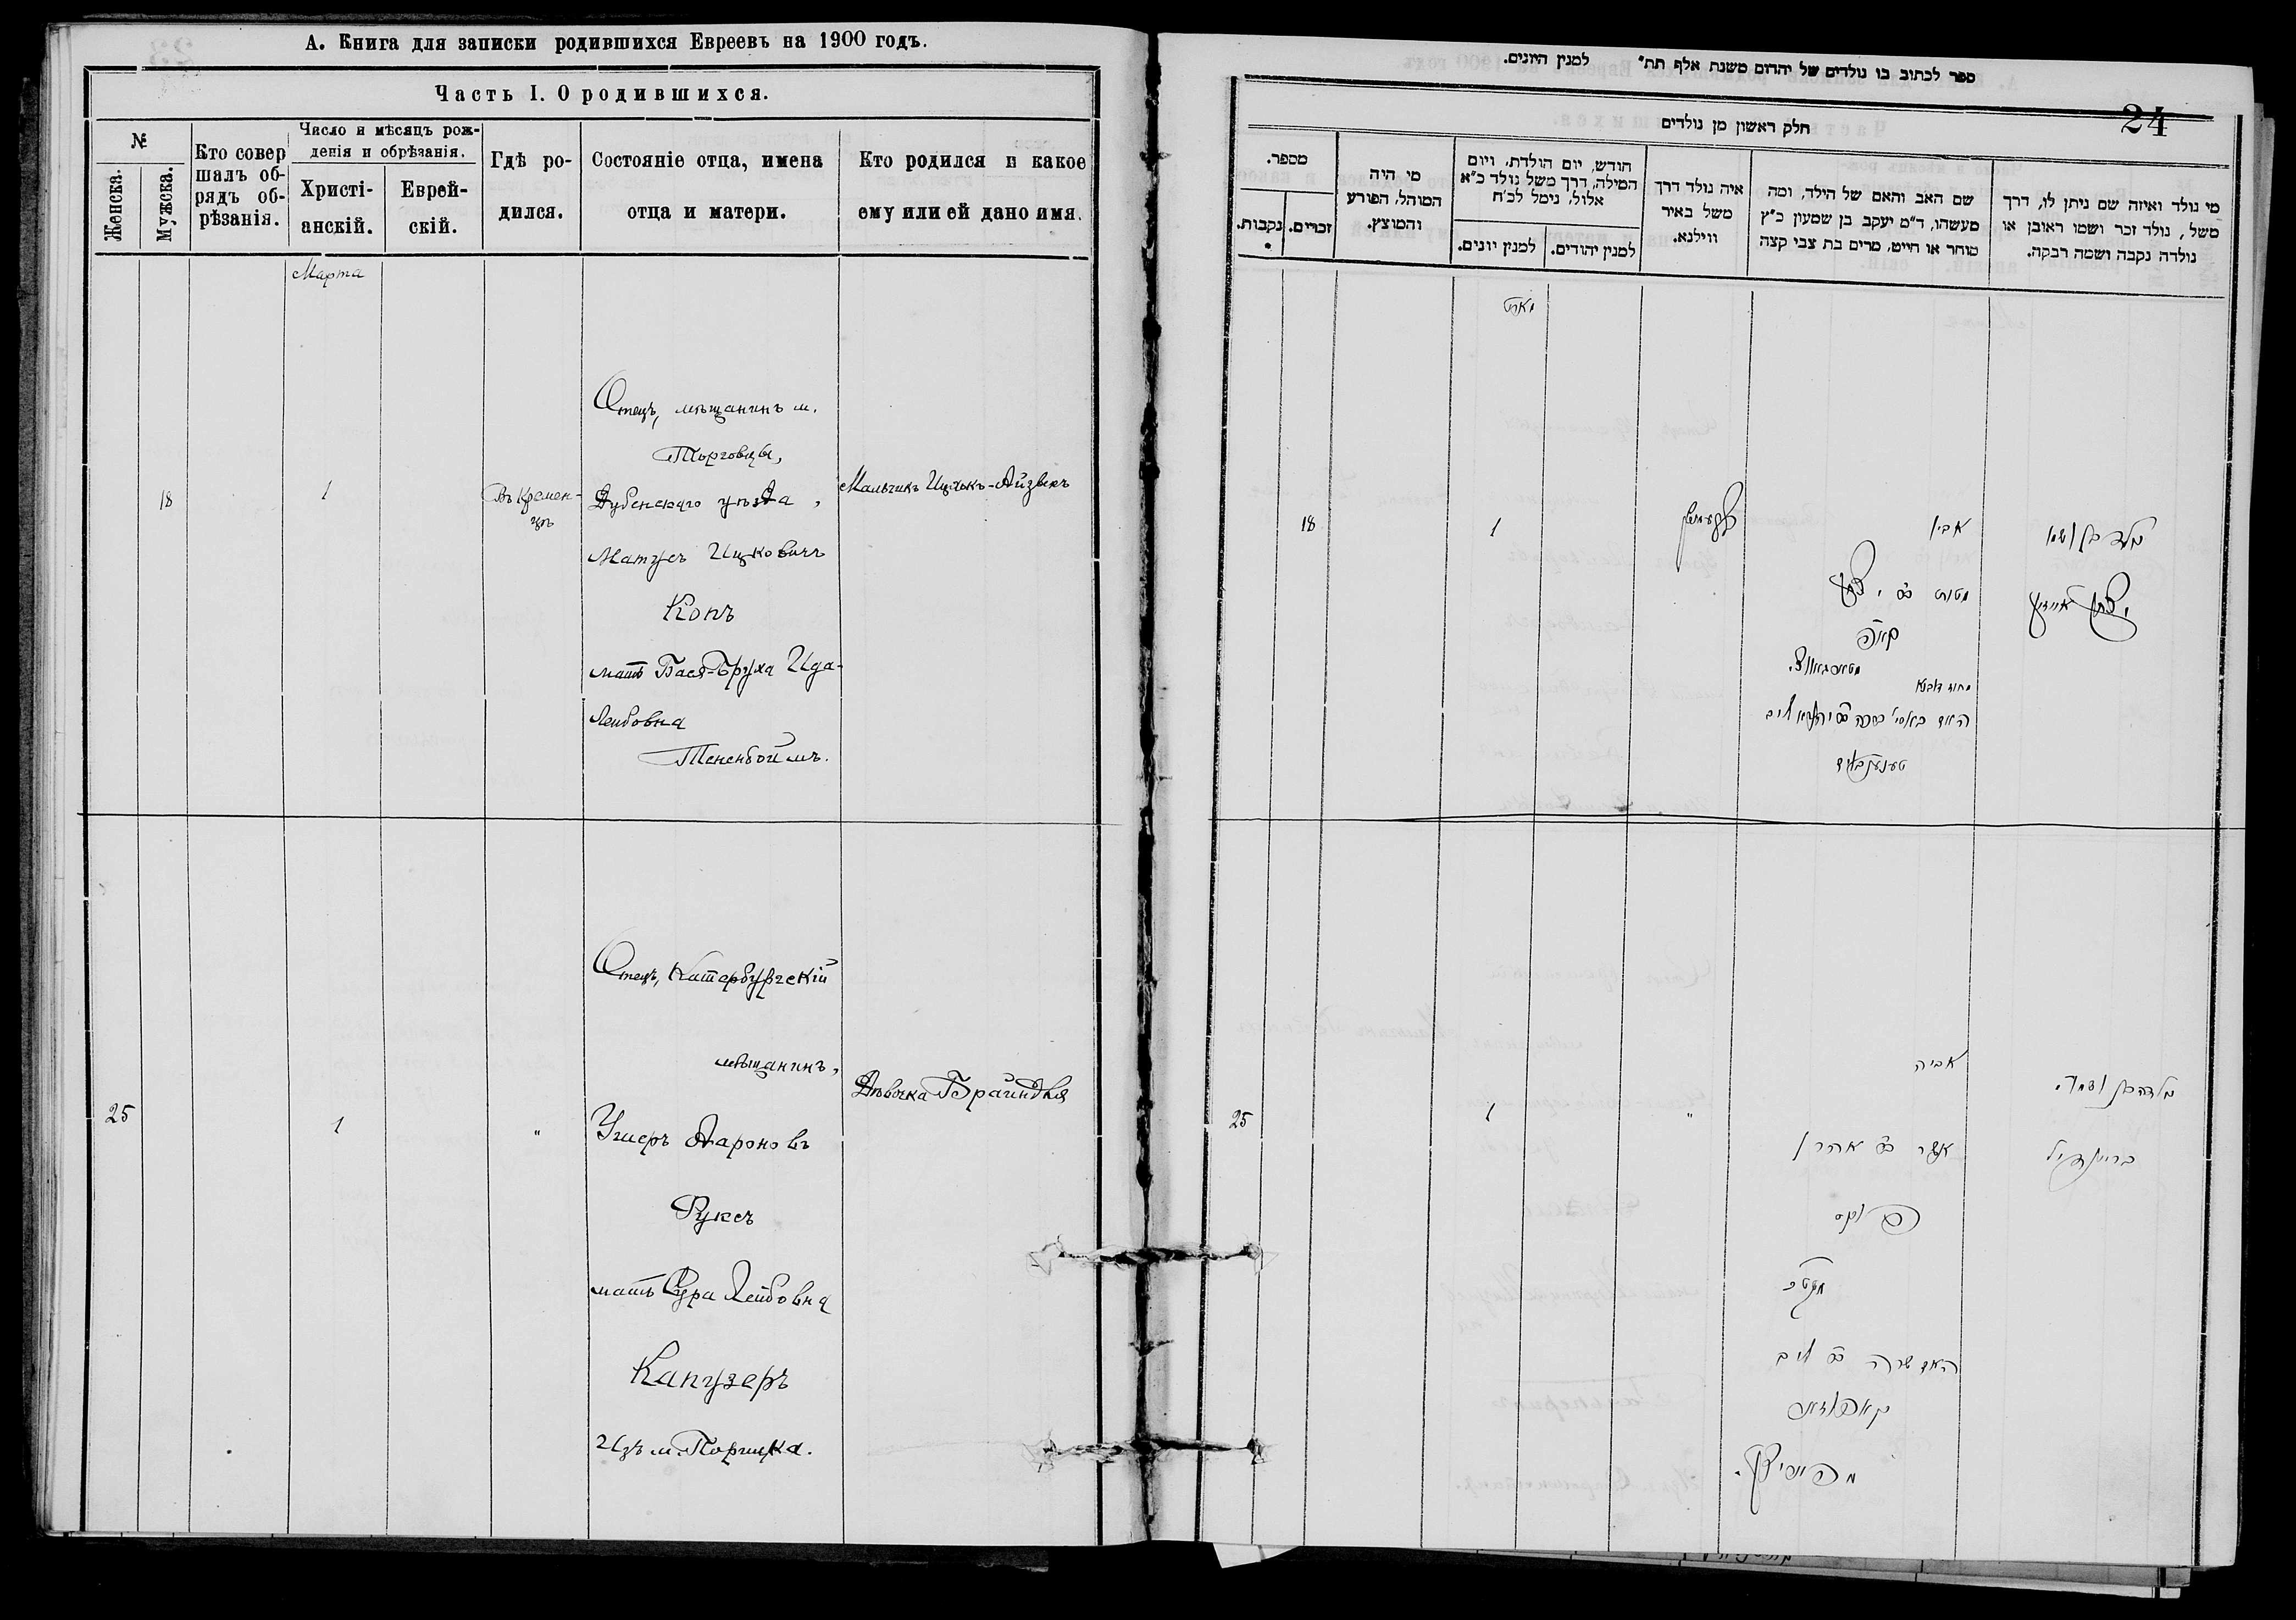 А. Книга для записки родившихся Евреевъ на 1900 годъ.
Часть I. О родившихся.
№
Женска.
Мужска.
Кто совер
шалъ об-
рядъ об-
рѣзанія.
Число и мѣсяцъ рож-
денія и обрѣзанія.
Христі-
анскій.
Еврей-
скій.
Гдѣ ро-
дился.
Состояніе отца, имена
отца и матери.
Кто родился и какое
ему или ей дано имя.
Марта
18
1
Въ Кремен-
цѣ
Отецъ, мѣщанинъ м.
Торговицы,
Дубенскаго уѣзда,
Матусъ Ицковичъ
Копъ
мать Бася-Бруха Ида-
Лейбовна
Тененбоймъ.
Мальчикъ Ицхокъ-Айзыкъ
25
1
"
Отецъ, Катербургскій
мѣщанинъ,
Ушеръ Аароновъ
Фуксъ
мать Сура Лейбовна
Капузеръ
Изъ м. Порицка.
Дѣвочка Брайндля
ספר לכתוב בו נולדים של יהדום משנת אלף תת״ למנין היונים.
24
חלק ראשון מן נולדים
מספר.
נקבות.
זכרים.
מי היה
המוהל, הפורע
והמוצץ.
חודש, יום הולדת, ויום
המילה, דרך משל נולד כ״א
אלול, נימל לכ״ח
למנין יונים.
למנין יהודים.
איה נולד דרך
משל באיר
ווילנא.
שם האב והאם של הילד, ומה
מעשהו, ד״מ יעקב בן שמעון כ״ץ
סוחר או חייט, מרים בת צבי קצה
מי נולד ואיזה שם ניתן לו, דרך
משל, נולד זכר ושמו ראובן או
נולדה נקבה ושמה רבקה.
מארט
18
1
אביו
קאפ
טענענבוים
25
1
"
אביה
אשר אהרן
פוקס
האם שרה ליב